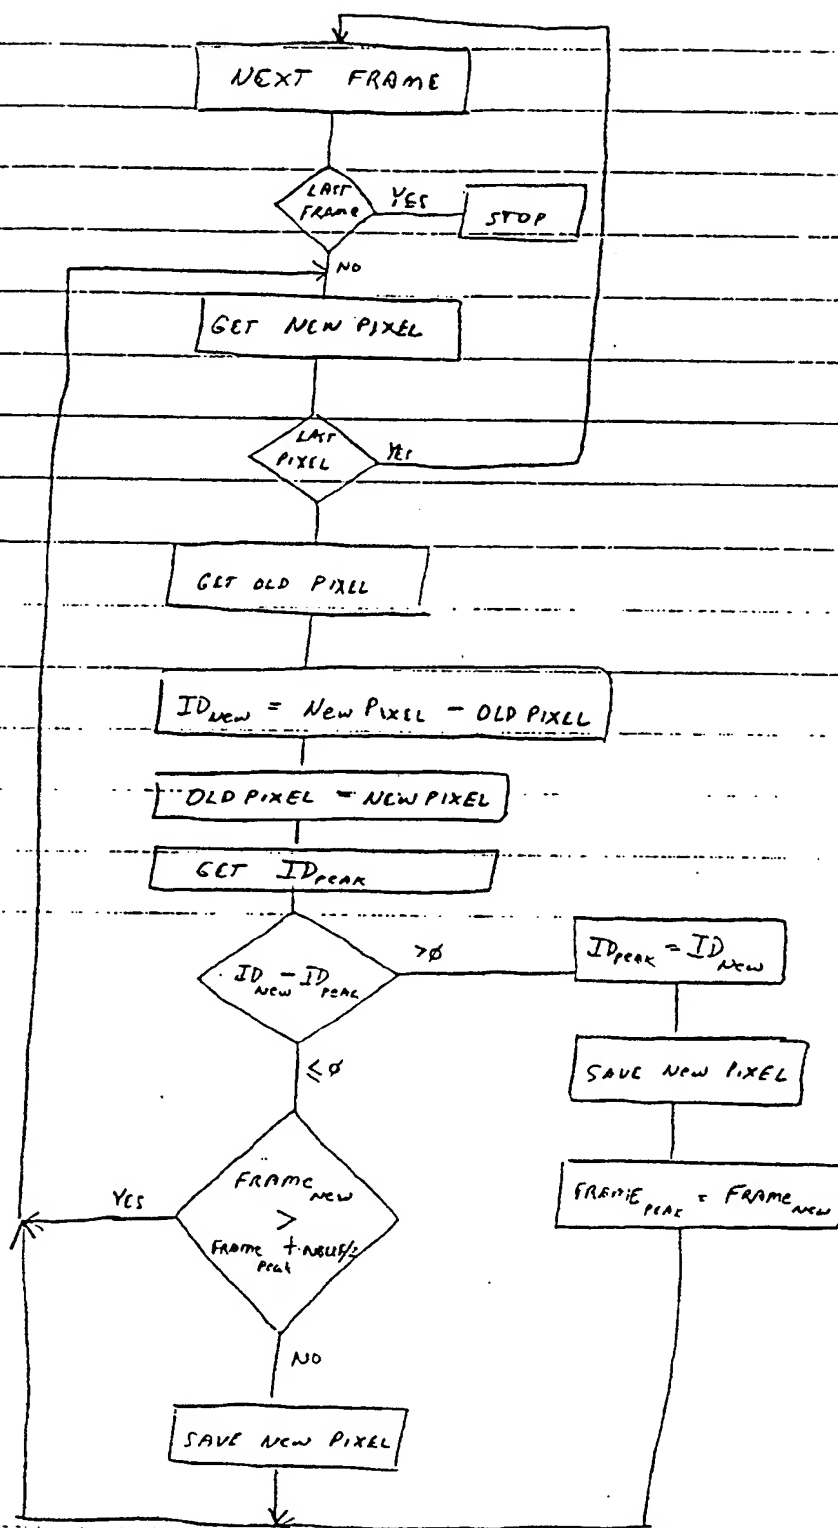 NEXT FRAME
LAST
FRAME
YES
STOP
NO
GET NEW PIXEL
LAST
PIXEL
YES
GET OLD PIXEL
ID NEW = NEW PIXEL - OLD PIXEL
OLD PIXEL = NEW PIXEL
GET ID PEAK
ID NEW - ID PEAK
>Ø
ID PEAK = ID NEW
≤Ø
SAVE NEW PIXEL
FRAME NEW
>
FRAME PEAK + NBUF/2
YES
FRAME PEAK = FRAME NEW
NO
SAVE NEW PIXEL